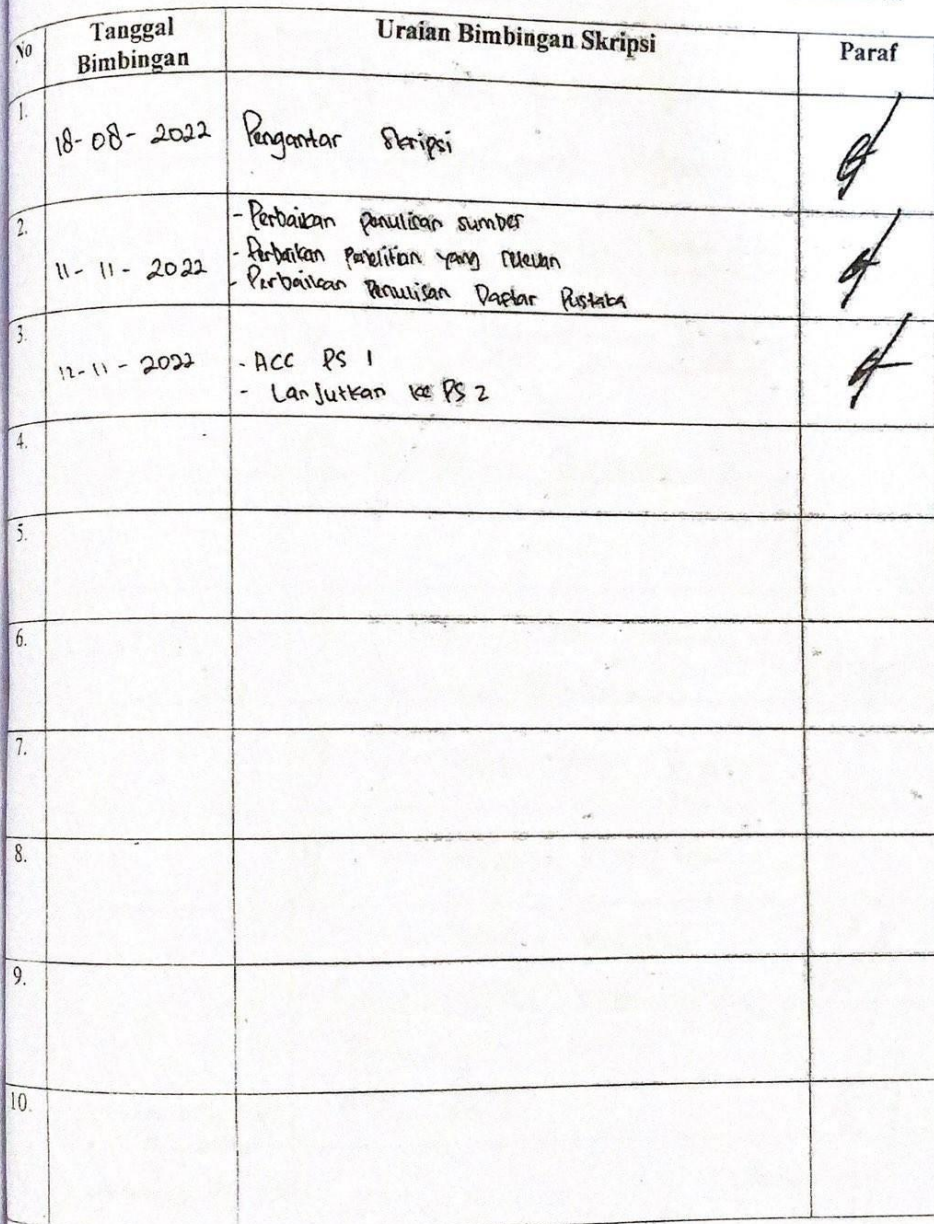 No
Tanggal
Bimbingan
Uraian Bimbingan Skripsi
Paraf
1.
18-08-2022
Pengantar Skripsi
2.
11-11-2022
- Perbaikan penulisan sumber
- Perbaikan Penelitian yang relevan
- Perbaikan Penulisan Daptar Pustaka
3.
12-11-2022
- ACC PS 1
- Lanjutkan ke PS 2
4.
5.
6.
7.
8.
9.
10.